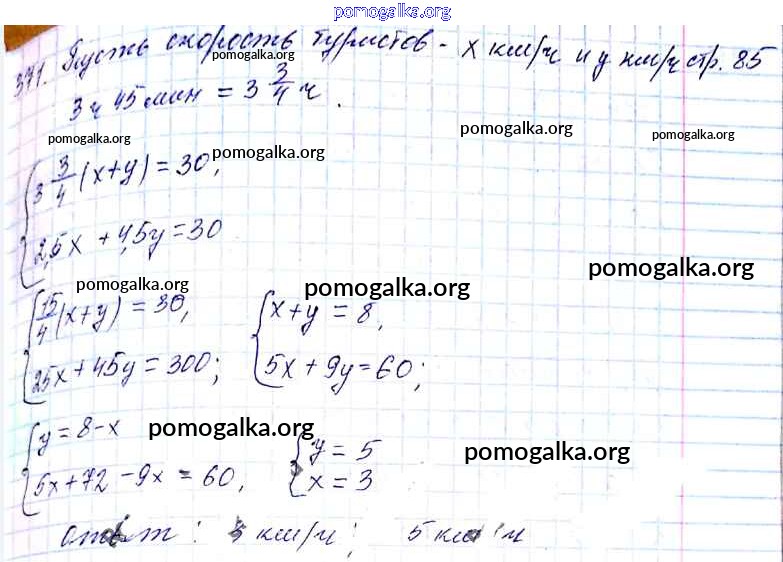 pomogalka.org
371. Пусть скорость туристов - x км/ч и y км/ч стр. 85
pomogalka.org
3 ч 45 мин = 3 3/4 ч.
pomogalka.org pomogalka.org pomogalka.org
pomogalka.org
{ 3 3/4 (x+y) = 30,
2,5x + 4,5y = 30
pomogalka.org
pomogalka.org pomogalka.org
{ 15/4 (x+y) = 30, { x+y = 8,
25x + 45y = 300; 5x + 9y = 60;
{ y = 8-x pomogalka.org { y = 5
5x + 72 - 9x = 60, x = 3 pomogalka.org
ответ: 3 км/ч; 5 км/ч